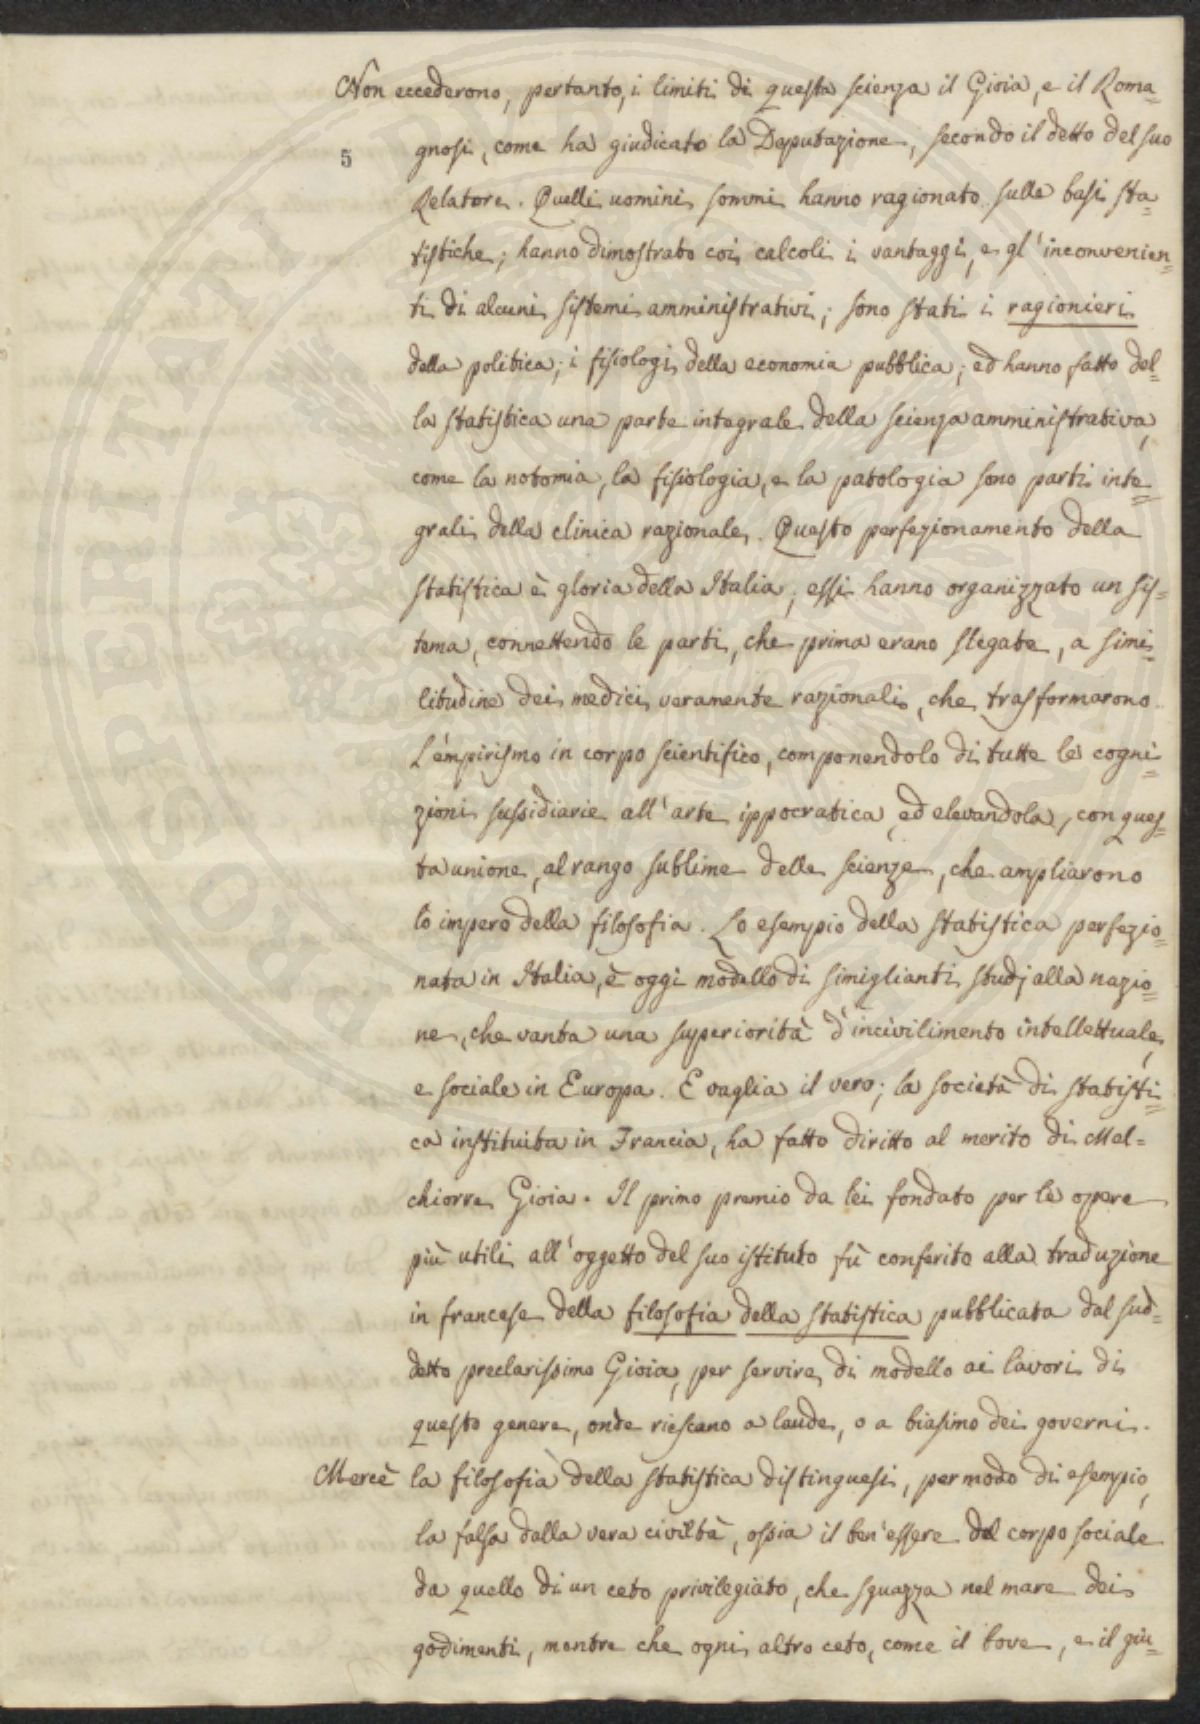 Non eccederono, pertanto, i limiti di questa scienza il Gioia, e il Roma=
5
gnosi, come ha giudicato la Deputazione, secondo il detto del suo
Relatore. Quelli uomini sommi hanno ragionato sulle basi sta=
tistiche; hanno dimostrato coi calcoli i vantaggi, e gl'inconvenien=
ti di alcuni sistemi amministrativi; sono stati i ragionieri
della politica; i fisiologi della economia pubblica; ed hanno fatto del=
la statistica una parte integrale della scienza amministrativa,
come la notomia, la fisiologia, e la patologia sono parti inte=
grali della clinica razionale. Questo perfezionamento della
statistica è gloria della Italia; essi hanno organizzato un sis=
tema, connettendo le parti, che prima erano slegate, a simi=
litudine dei medici veramente razionali, che trasformarono
L'empirismo in corpo scientifico, componendolo di tutte le cogni=
zioni sussidiarie all'arte ippocratica, ed elevandola, con ques=
ta unione, al rango sublime delle scienze, che ampliarono
lo impero della filosofia. Lo esempio della statistica perfezio=
nata in Italia, è oggi modello di simiglianti studj alla nazio=
ne, che vanta una superiorità d'incivilimento intellettuale,
e sociale in Europa. E vaglia il vero; la società di statisti=
ca instituita in Francia, ha fatto diritto al merito di Mel=
chiorre Gioia. Il primo premio da lei fondato per le opere
più utili all'oggetto del suo istituto fù conferito alla traduzione
in francese della filosofia della statistica pubblicata dal sud=
detto preclarissimo Gioia, per servire di modello ai lavori di
questo genere, onde riescano a laude, o a biasimo dei governi.
Mercè la filosofia della statistica distinguesi, per modo di esempio,
la falsa dalla vera civiltà, ossia il ben'essere del corpo sociale
da quello di un ceto privilegiato, che sguazza nel mare dei
godimenti, mentre che ogni altro ceto, come il bove, e il giu=
PROSPERITATI PUBLICAE